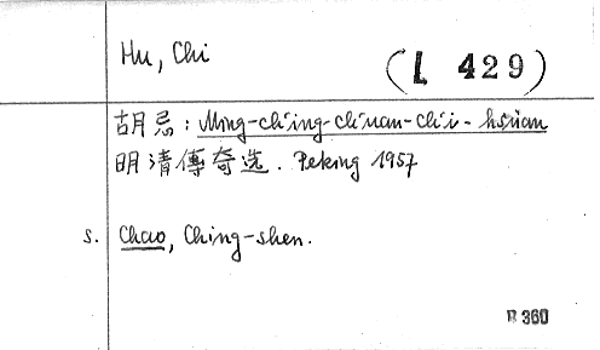 Hu, Chi
(L 429)
胡忌: Ming-ch'ing-ch'uan-ch'i-hsüan
明清傳奇选. Peking 1957
s. Chao, Ching-shen.
R 360